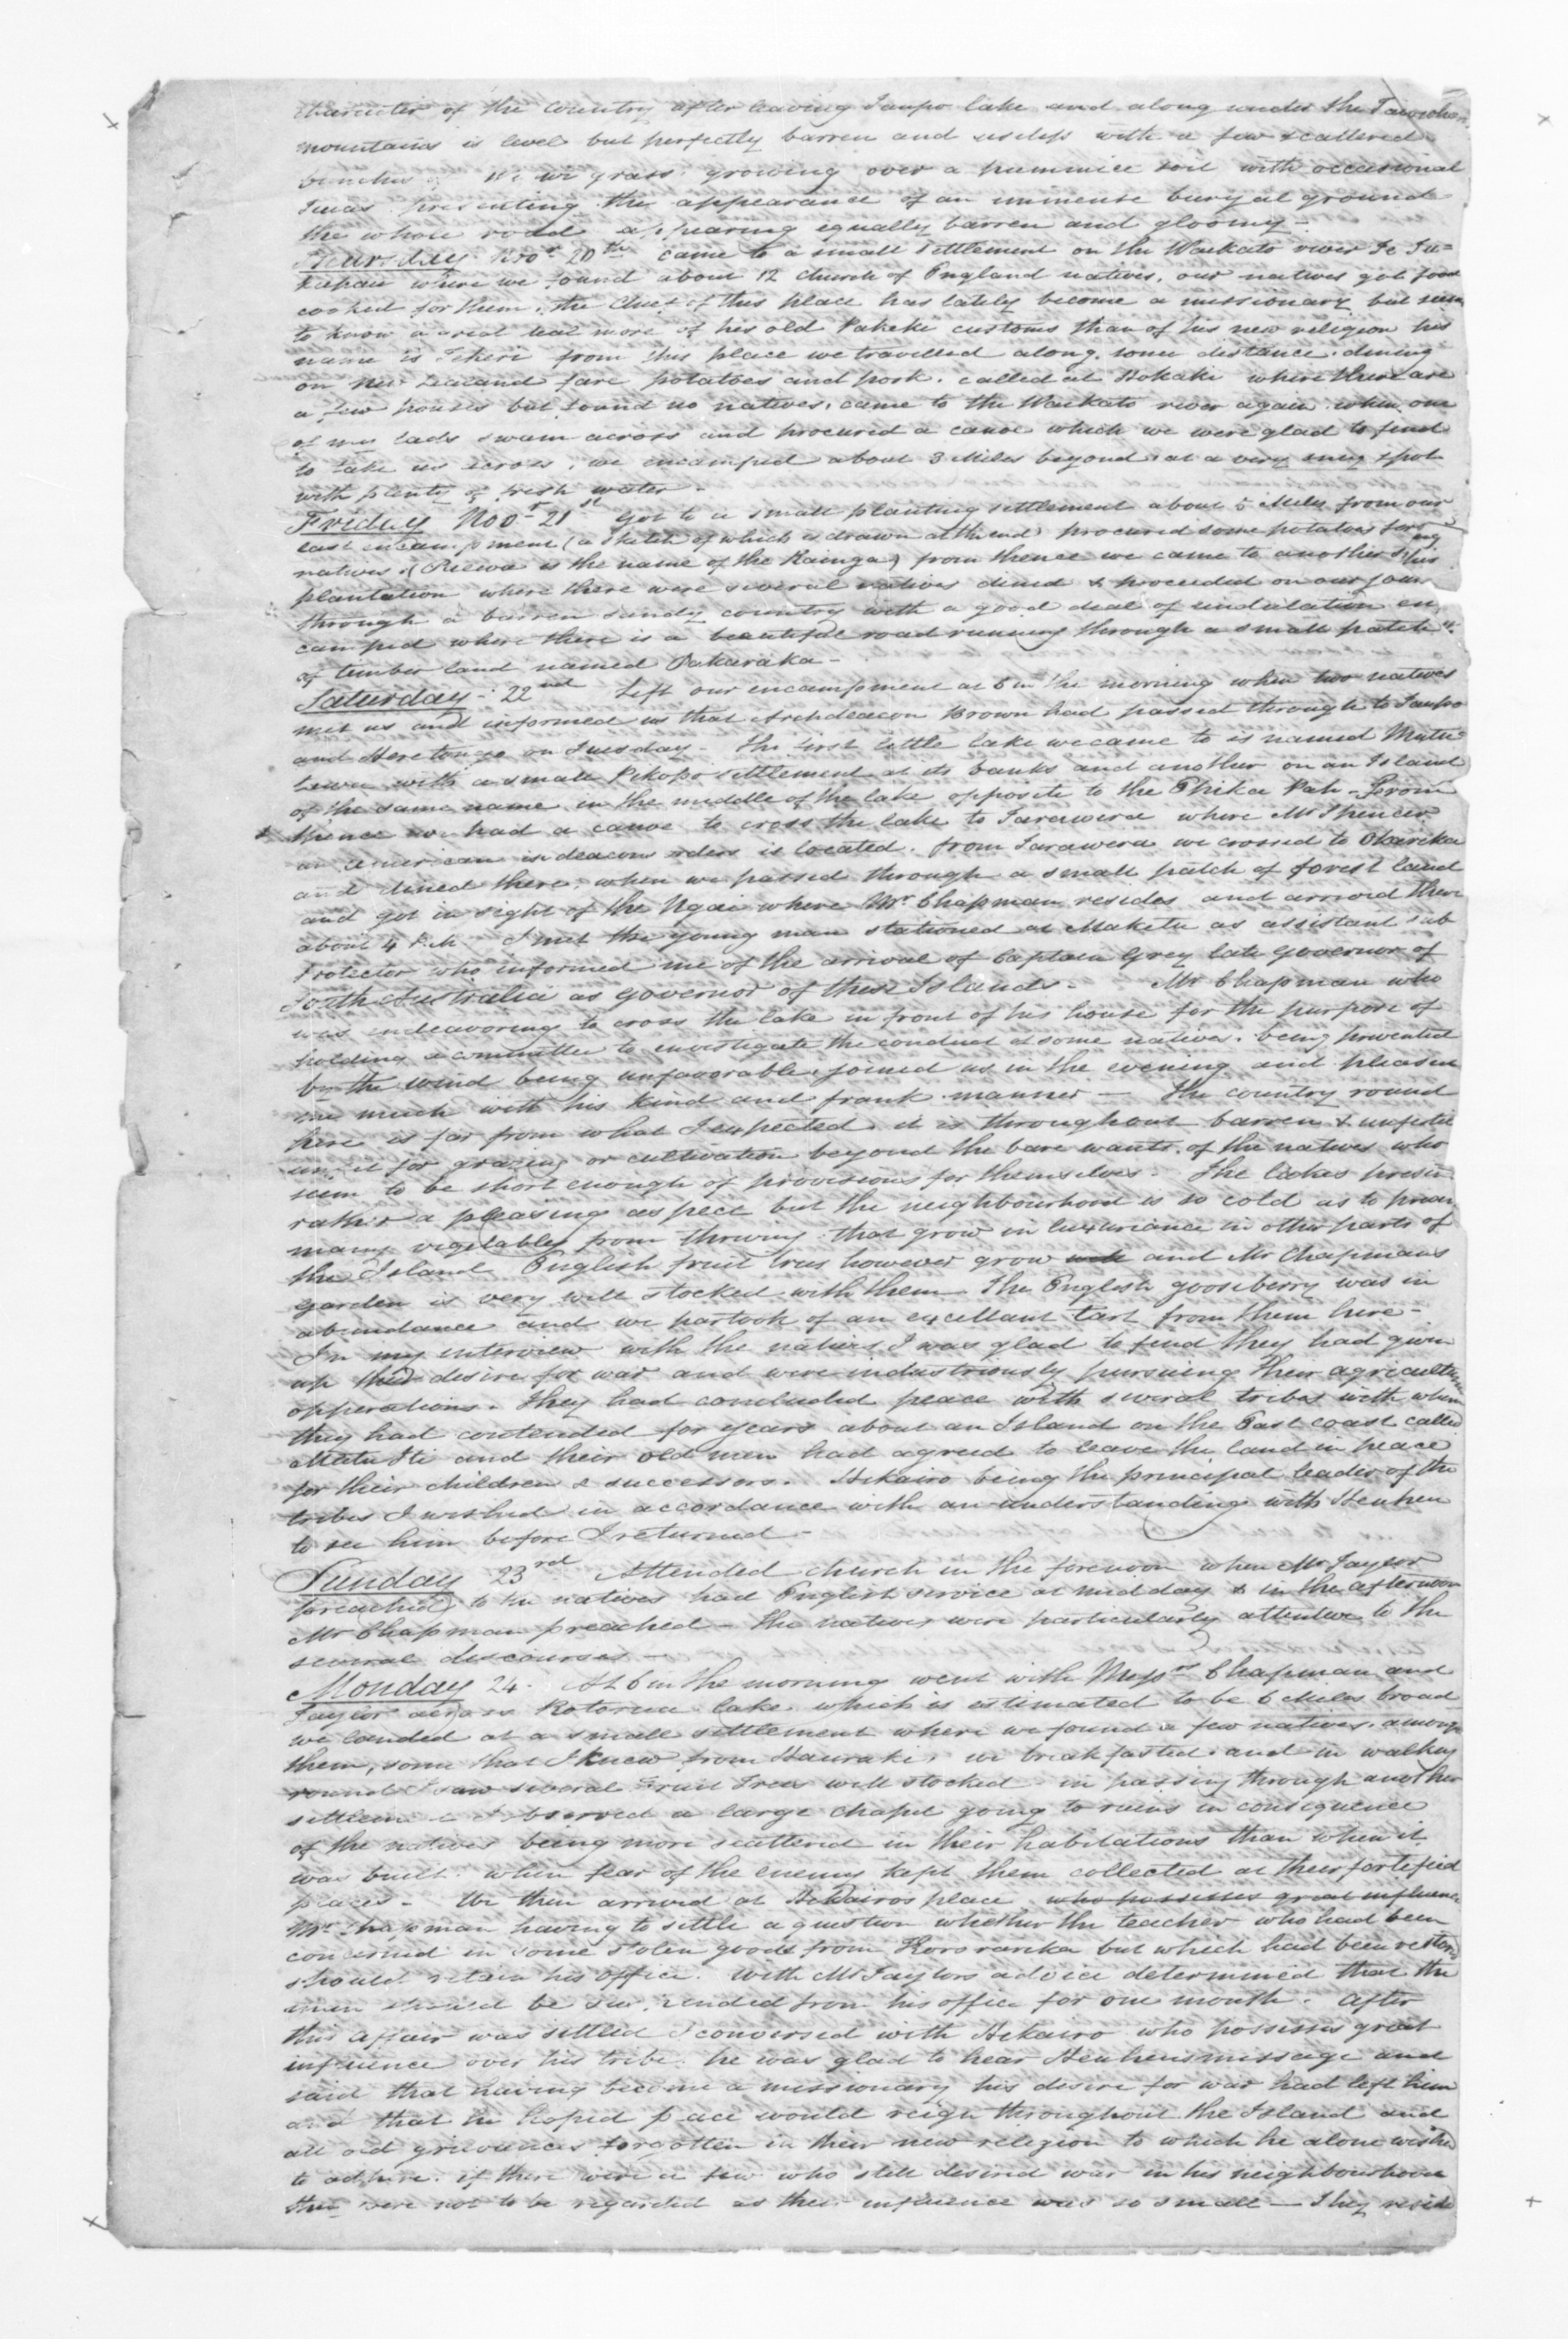 character of the country after leaving Taupo lake and along under the
mountains is level but perfectly barren and useless with a few scattered
bunches of wi grass growing over a pummice soil with occasional
presenting the appearance of an immense buryal ground
the whole road appearing equally barren and gloomy -
Thursday Novr 20th came to a small settlement on the Waikato river Te
where we found about 12 church of England natives, our natives got food
cooked for them, the Chief of this place has lately become a missionary but seems
to know a great deal more of his old customs than of his new religion his
name is from this place we travelled along some distance. dining
on New Zealand fare potatoes and pork. called at where there are
a few houses but found no natives, came to the Waikato river again when one
of my lads swam across and procured a canoe which we were glad to find
to take us across, we encamped about 3 Miles beyond at a very snug spot
with plenty of fresh water -
Friday Novr 21st Got to a small planting settlement about 5 Miles from our
last encampment (a sketch of which is drawn at the end) procured some potatoes for my
natives, ( is the name of the Kainga) from thence we came to another
plantation where there were several natives dined & proceeded on our
through a barren sandy country with a good deal of undulation en
camped where there is a beautiful road running through a small patch
of timber land named Pakaraka -
Saturday - 22nd Left our encampment at 6 in the morning when two natives
met us and informed us that Archdeacon Brown had passed through to Taupo
and on Tuesday - The first little lake we came to is named
with a small Pikopo settlement at its banks and another on an Island
of the same name in the middle of the lake opposite to the Pah - From
thence we had a canoe to cross the lake to Tarawera where Mr Spencer
an American in deacons orders is located. from Tarawera we crossed to
and dined there, when we passed through a small patch of forest land
and got in sight of the Ngai where Mr Chapman resides and arrived there
about 4 P.M. I met the young man stationed at Maketu as assistant sub
Protector who informed me of the arrival of Captain Grey late Governor of
South Australia as governor of these Islands - Mr Chapman who
was endeavoring to cross the lake in front of his house for the purpose of
holding a committee to investigate the conduct of some natives. being prevented
by the wind being unfavorable, joined us in the evening and pleased
me much with his kind and frank manner - The country round
here is far from what I expected, it is throughout barren &
unfit for grazing or cultivation beyond the bare wants of the natives who
seem to be short enough of provisions for themselves. The lakes present
rather a pleasing aspect but the neighbourhood is so cold as to
many vegetables from thriving that grow in luxuriance in other parts of
the Island English fruit trees however grow well and Mr Chapmans
garden is very well stocked with them. The English gooseberry was in
abundance and we partook of an excellant tart from them here -
In my interview with the natives I was glad to find they had given
up their desire for war and were industriously pursuing their
opperations. They had concluded peace with several tribes with whom
they had contended for years about an Island on the East coast called
and their old men had agreed to leave the land in peace
for their children & successors. Hikairo being the principal leader of the
tribes I wished in accordance with an understanding with Heuheu
to see him before I returned -
Sunday 23rd Attended church in the forenoon when Mr Taylor
preached to the natives had English service at midday & in the afternoon
Mr Chapman preached - the natives were particularly attentive to the
several discourses -
Monday 24. At 6 in the morning went with Messrs Chapman and
Taylor across Rotorua lake, which is estimated to be 6 Miles broad
we landed at a small settlement where we found a few natives, among
them, some that I knew from Hauraki, we breakfasted and in walking
round I saw several Fruit Trees well stocked. in passing through another
settlement I observed a large chapel going to ruins in consequence
of the natives being more scattered in their habitations than when it
was built when fear of the enemy kept them collected at their fortified
places. We then arrived at Hikairos place who possesses great influence
Mr Chapman having to settle a question whether the teacher who had been
concerned in some stolen goods from Kororareka but which had been
should retain his office. With Mr Taylors advice determined that the
man should be suspended from his office for one month. After
this affair was settled I conversed with Hikairo who possesses great
influence over his tribe, he was glad to hear Heuheus message and
said that having become a missionary his desire for war had left him
and that he hoped peace would reign throughout the Island and
all old grievances forgotten in their new religion to which he alone wished
to adhere. if there were a few who still desired war in his neighbourhood
they were not to be regarded as their influence was so small - They reside